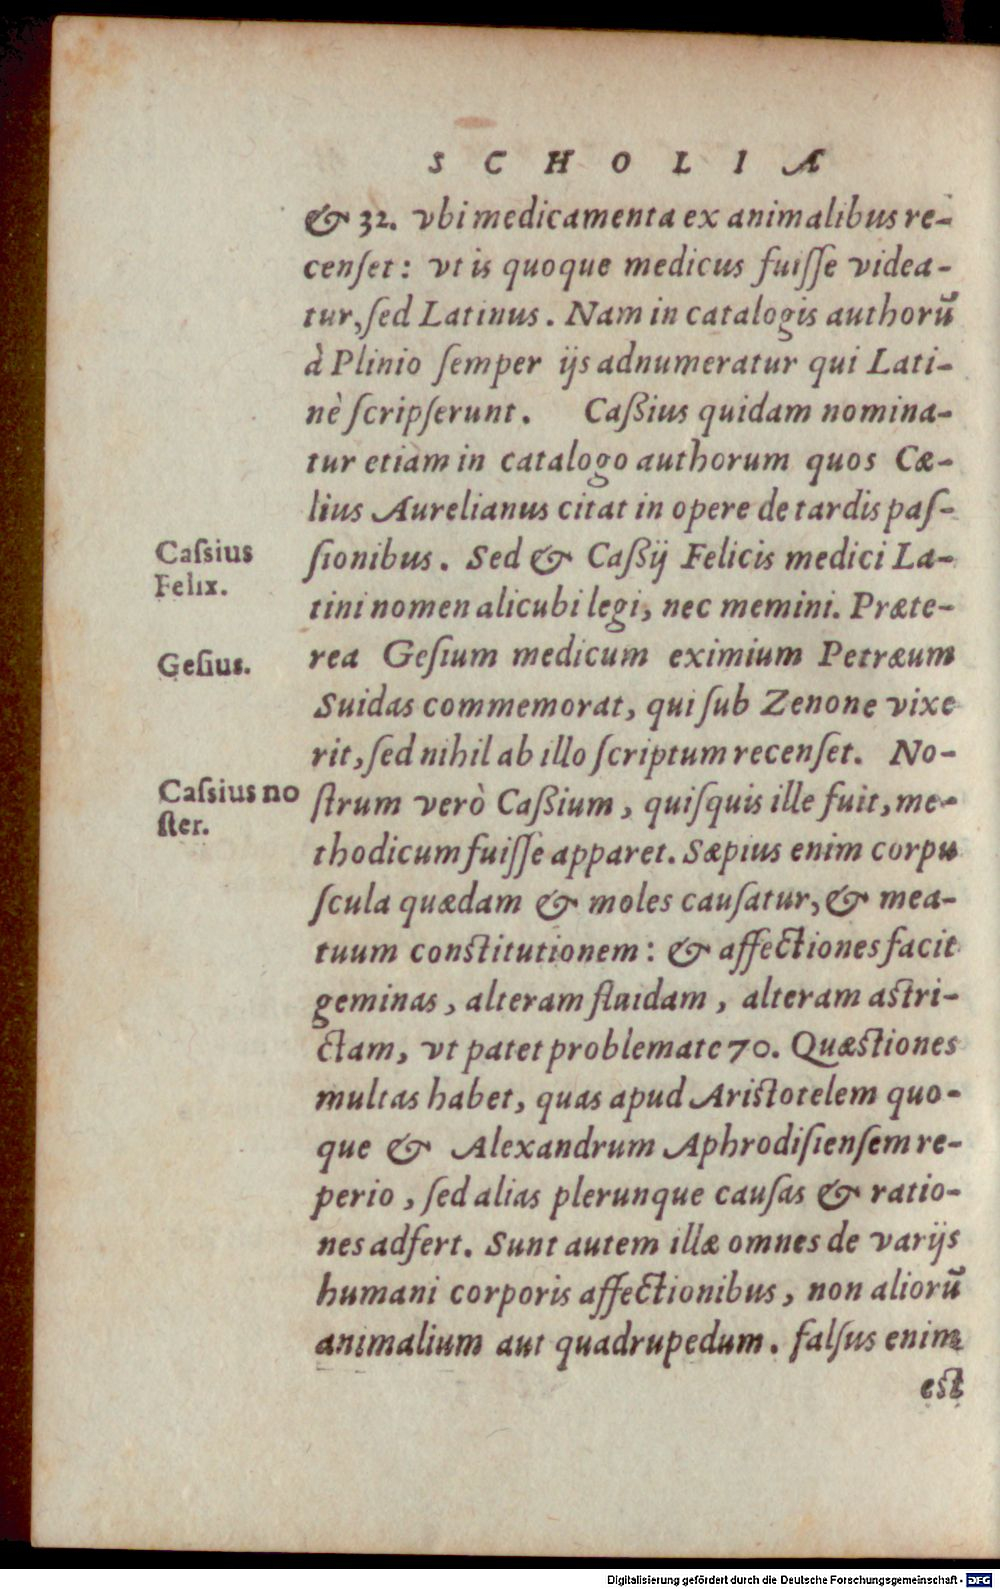 S C H O L I A
& 32. vbi medicamenta ex animalibus re-
cenſet: vt is quoque medicus fuiſſe videa-
tur, ſed Latinus. Nam in catalogis authorū
à Plinio ſemper ijs adnumeratur qui Lati-
nè ſcripſerunt. Caßius quidam nomina-
tur etiam in catalogo authorum quos Cæ-
lius Aurelianus citat in opere de tardis paſ-
Caſsius
Felix.
ſionibus. Sed & Caßij Felicis medici La-
tini nomen alicubi legi, nec memini. Præte-
Geſius.
rea Geſium medicum eximium Petræum
Suidas commemorat, qui ſub Zenone vixe
rit, ſed nihil ab illo ſcriptum recenſet. No-
Caſsius no
ſter.
ſtrum verò Caßium, quiſquis ille fuit, me-
thodicum fuiſſe apparet. Sæpius enim corpu
ſcula quædam & moles cauſatur, & mea-
tuum conſtitutionem: & affectiones facit
geminas, alteram fluidam, alteram aſtri-
ctam, vt patet problemate 70. Quæſtiones
multas habet, quas apud Ariſtotelem quo-
que & Alexandrum Aphrodiſienſem re-
perio, ſed alias plerunque cauſas & ratio-
nes adfert. Sunt autem illæ omnes de varijs
humani corporis affectionibus, non aliorū
animalium aut quadrupedum. falſus enim
eſt
Digitalisierung gefördert durch die Deutsche Forschungsgemeinschaft - DFG